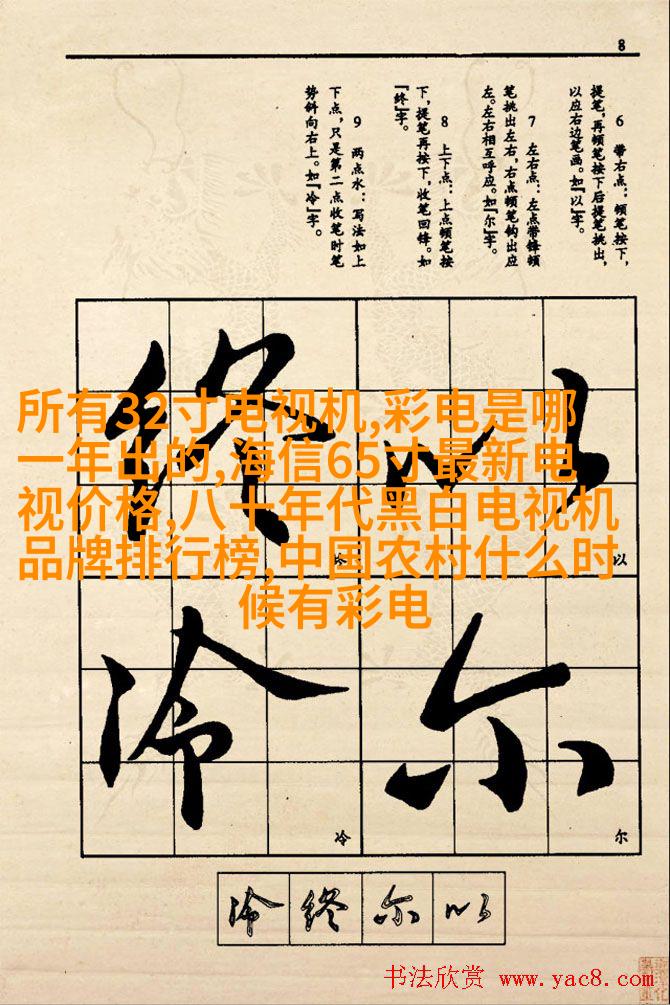 8
6 带右点：顿笔按下，
提笔，再顿笔按下后提笔挑出，
以应右边笔画。如『以』字。
7 左右点：左点带锋顿
笔挑出左右，右点顿笔钩出应
左。左右相互呼应。如『尔』字。
8 上下点：上点顿笔按
下，提笔再按下，收笔回锋。如
『终』字。
9 两点水：写法如上
下点，只是第二点收笔时笔
势斜向右上。如『冷』字。
所有32寸电视机,彩电是哪
一年出的,海信65寸最新电
视价格,八十年代黑白电视机
品牌排行榜,中国农村什么时
候有彩电
终 以
以
冷 尔
冷 尔
冷 终 尔 以
书法欣赏 www.yac8.com